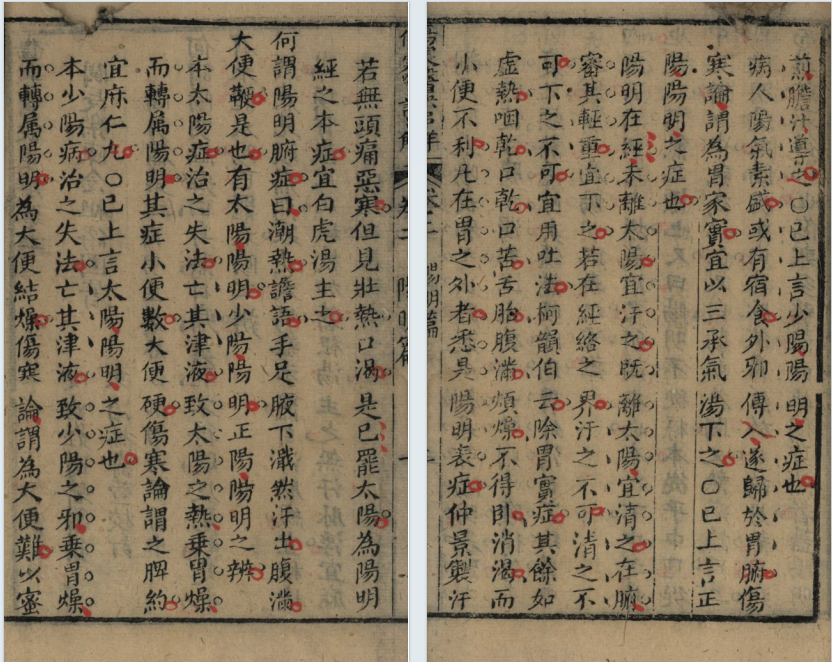 卷二 陽明篇
若無頭痛惡寒但見壯熱口渴是已罷太陽為陽明
經之本症宜白虎湯主之
何謂陽明腑症曰潮熱譫語手足腋下濈然汗出腹滿
大便鞕是也有太陽陽明少陽陽明正陽陽明之辨
本太陽症治之失法亡其津液致太陽之熱乗胃燥
而轉属陽明其症小便數大便硬傷寒論謂之脾約
宜麻仁丸〇已上言太陽陽明之症也
本少陽病治之失法亡其津液致少陽之邪乗胃燥
而轉属陽明為大便結燥傷寒論謂為大便難以蜜
煎膽汁導之〇已上言少陽陽明之症也
病人陽氣素盛或有宿食外邪傳入遂歸於胃腑傷
寒論謂為胃家實宜以三承氣湯下之〇已上言正
陽陽明之症也
陽明在經未離太陽宜汗之既離太陽宜清之在腑
審其輕重宜下之若在經絡之界汗之不可清之不
可下之不可宜用吐法柯韻伯云除胃實症其餘如
虛熱咽乾口乾口苦舌胎腹滿煩燥不得卧消渴而
小便不利凡在胃之外者悉是陽明表症仲景製汗
卷二 陽明篇